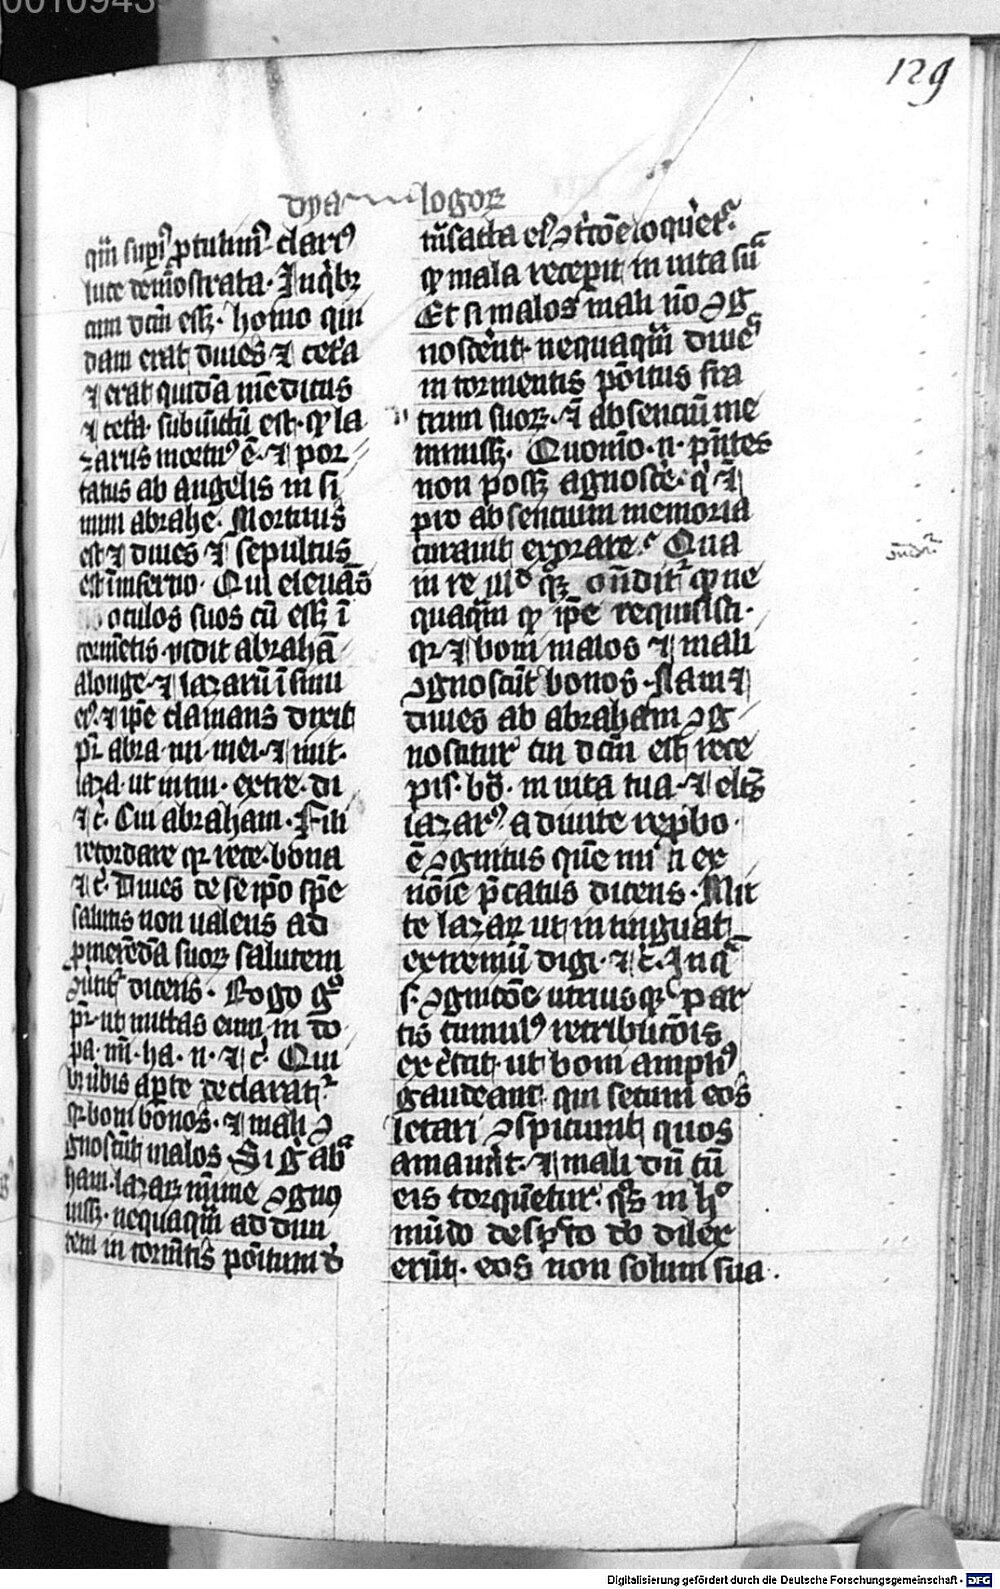 0010943
129
dya logoꝝ
qm̄ supi᷒ ptulim᷒ clari᷒
luce demōstrata. In qͥbꝫ
cum dc̄m essꝫ. homo qui
dam erat diues ⁊ cetͣa
⁊ erat quidā mēdicus
⁊ cetͣa. subiūctū est. qꝫ la
zarus mortu᷒ ē. ⁊ por
tatus ab angelis in si
num abrahe. Mortuus
est ⁊ diues ⁊ sepultus
est ī inferno. Qui eleuās
oculos suos cū essꝫ ī
tormētis vidit abrahā
alonge. ⁊ lazarū ī sinu
ei᷒. ⁊ ip̄e clamans dixit
pr̄ abra. mi. mei. ⁊ mit.
laza. ut intin. extre. di
⁊ c̄. Cui abraham. Fili
recordare qꝛ rece. bona
⁊ c̄. Diues de se ipō spē
salutis non ualens ad
ꝓmerēdā suoꝝ salutem
dicens. Rogo gͦ
pr̄. ut mittas eum in do
pa. mī. ha. n. ⁊ c̄. Qui
bꝫ ūbis apte declarat᷑
qꝛ boni bonos. ⁊ mali ꝯ
gnoscūt malos. Si gͦ abͣ
ham. lazaꝝ mīme ꝯgno
uissꝫ. nequaqͣm ad diui
tem in tormētis pōitum d̄
ei᷒ ꝯtͥcōe loqͥret᷑.
qꝫ mala recepit in uita suͣ
Et si malos mali nō ꝯg
noscerent. nequaqͣm diueˢ
in tormentis pōitus fra
trum suoꝝ. ⁊ absenciū me
minissꝫ. Quomō. n. pn̄tes
non possꝫ agnoscē. qͥ ⁊
pro absencium memoria
curauit exorare. Qua
in re ill᷒d qꝫ ondit᷑ qꝫ ne
quaqͣm qꝫ ip̄e requisisti.
qꝛ ⁊ boni malos ⁊ mali
ꝯgnoscūt bonos. Nam ⁊
diues ab abraham ꝯg
noscitur cui dc̄m est rece
pis. bō. in uita tua. ⁊ elcūs
lazar᷒ a diuite repbo
ē ꝯgnitus quē mi ex
nōie p̄catus dicens. Mit
te lazaꝝ ut intinguat
extremū digi. ⁊ c̄. In qͣ
s. ꝯgnicōe utriusqꝫ par
tis cumul᷒ retribucōis
excͣscit. ut boni ampli᷒
gaudeant. qui secum eos
letari ꝯspiciunt quos
amauūt. ⁊ mali dū cū
eis torquētur. qͦs in hͦ
mūdo despcō dō dilex
erūt. eos non solum sua
Digitalisierung gefördert durch die Deutsche Forschungsgemeinschaft - DFG